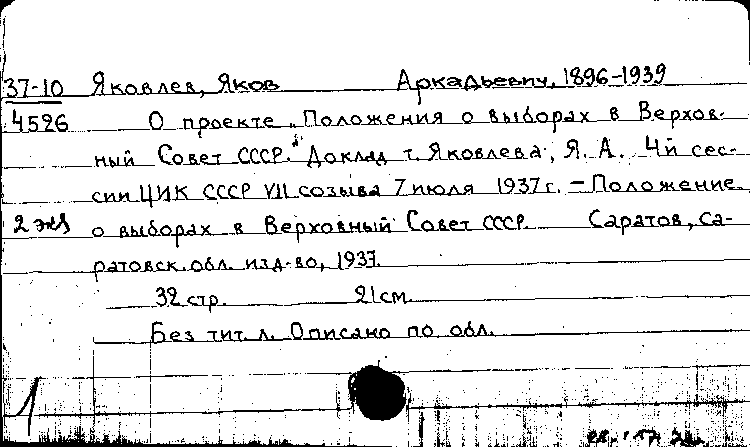 37-10 Яковлев, Яков Аркадьевич, 1896-1939
4526 О проекте „Положения о выборах в Верхов-
ный Совет СССР." Доклад т. Яковлева, Я. А. 4й сес-
сии ЦИК СССР VII созыва 7 июля 1937 г. – Положение
2 экз о выборах в Верховный Совет СССР. Саратов, Са-
ратовск. обл. изд-во, 1937.
32 стр. 21 см.
Без тит. л. Описано по обл.
1